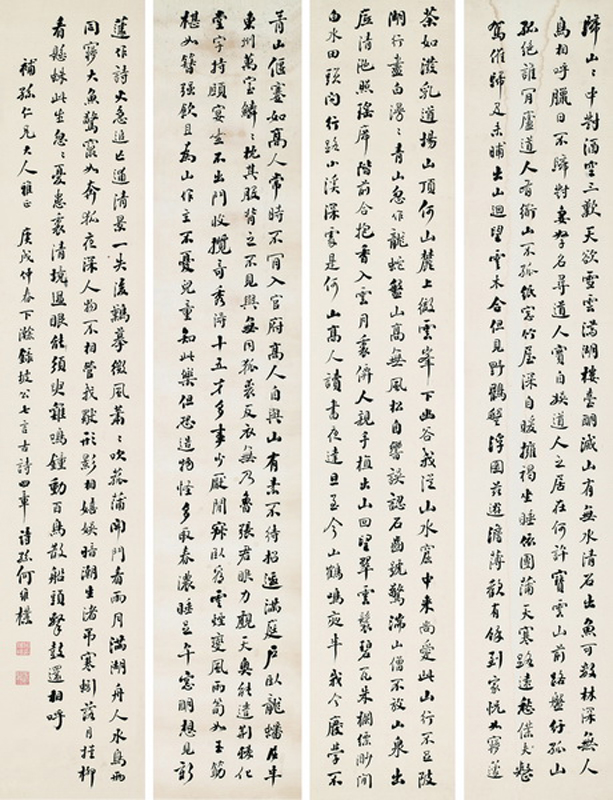 歸山〻中對酒空三歎天欲雪雲滿湖樓臺明滅山有無水清石出魚可數林深無人
鳥相呼臘日不歸對妻孥名尋道人實自娛道人之居在何許寶雲山前路盤紆孤山
孤絕誰肯廬道人有道山不孤紙窗竹屋深自暖擁褐坐睡依團蒲天寒路遠愁僕夫整
駕催歸及未晡出山迴望雲木合但見野鶻盤浮圖茲遊澹薄歡有餘到家怳如夢蘧
茶如潑乳道場山頂何山麓上徹雲峯下幽谷我從山水窟中來尚愛此山行不足陂
湖行盡白漫〻青山忽作龍蛇盤山高無風松自響誤認石齒號驚湍山僧不放山泉出
屋底清池照瑤席階前合抱香入雲月裏儔人親手植出山回望翠雲鬟碧瓦朱欄縹緲間
白水田頭問行路小溪深處是何山高人讀書夜達旦至今山鶴鳴夜半我今廢學不
青山偃蹇如高人常時不肯入官府高人自與山有素不待招邀滿庭戶臥龍蟠屈半
東州萬室鱗〻枕其股背之不見與無同狐裘反衣無乃魯張君眼力覷天奧能遣荊棘化
堂宇持頤宴坐不出門收攬奇秀得十五才多事少厭閒寂臥看雲煙變風雨筍如玉筯
椹如簪強飲且為山作主不憂兒童知此樂但恐造物怪多取春濃睡足午窗明想見新
蘧作詩火急追亡逋清景一失後難摹微風蕭〻吹菰蒲開門看雨月滿湖舟人水鳥兩
同夢大魚驚竄如奔狐夜深人物不相管我獨形影相嬉娛暗潮生渚弔寒蚓落月挂柳
看懸蛛此生忽〻憂患裏清境過眼能須臾雞鳴鐘動百鳥散船頭擊鼓還相呼
補孫仁兄大人雅正 庚戌仲春下澣錄坡公七言古詩四章 詩孫何維樸